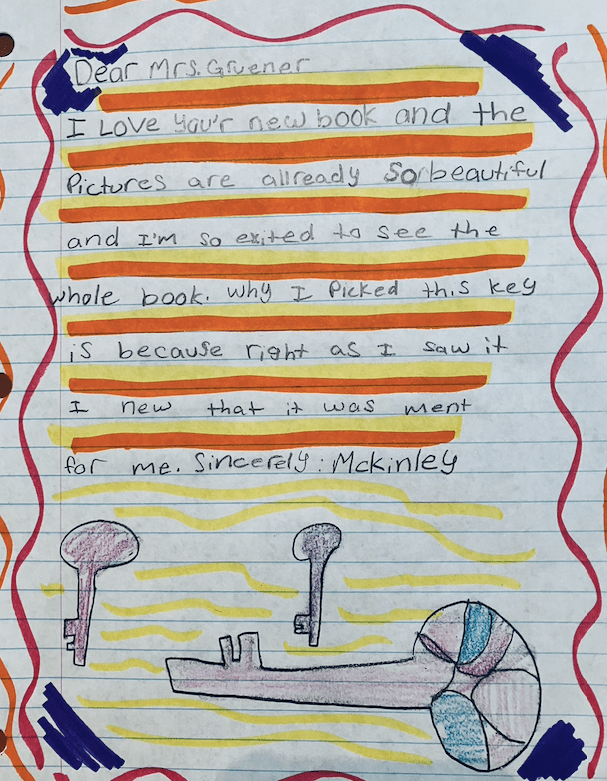 Dear Mrs. Gruener
I Love you'r new book and the
Pictures are allready so beautiful
and I'm so exited to see the
whole book. Why I Picked this key
is because right as I saw it
I new that it was ment
for me. Sincerely: Mckinley